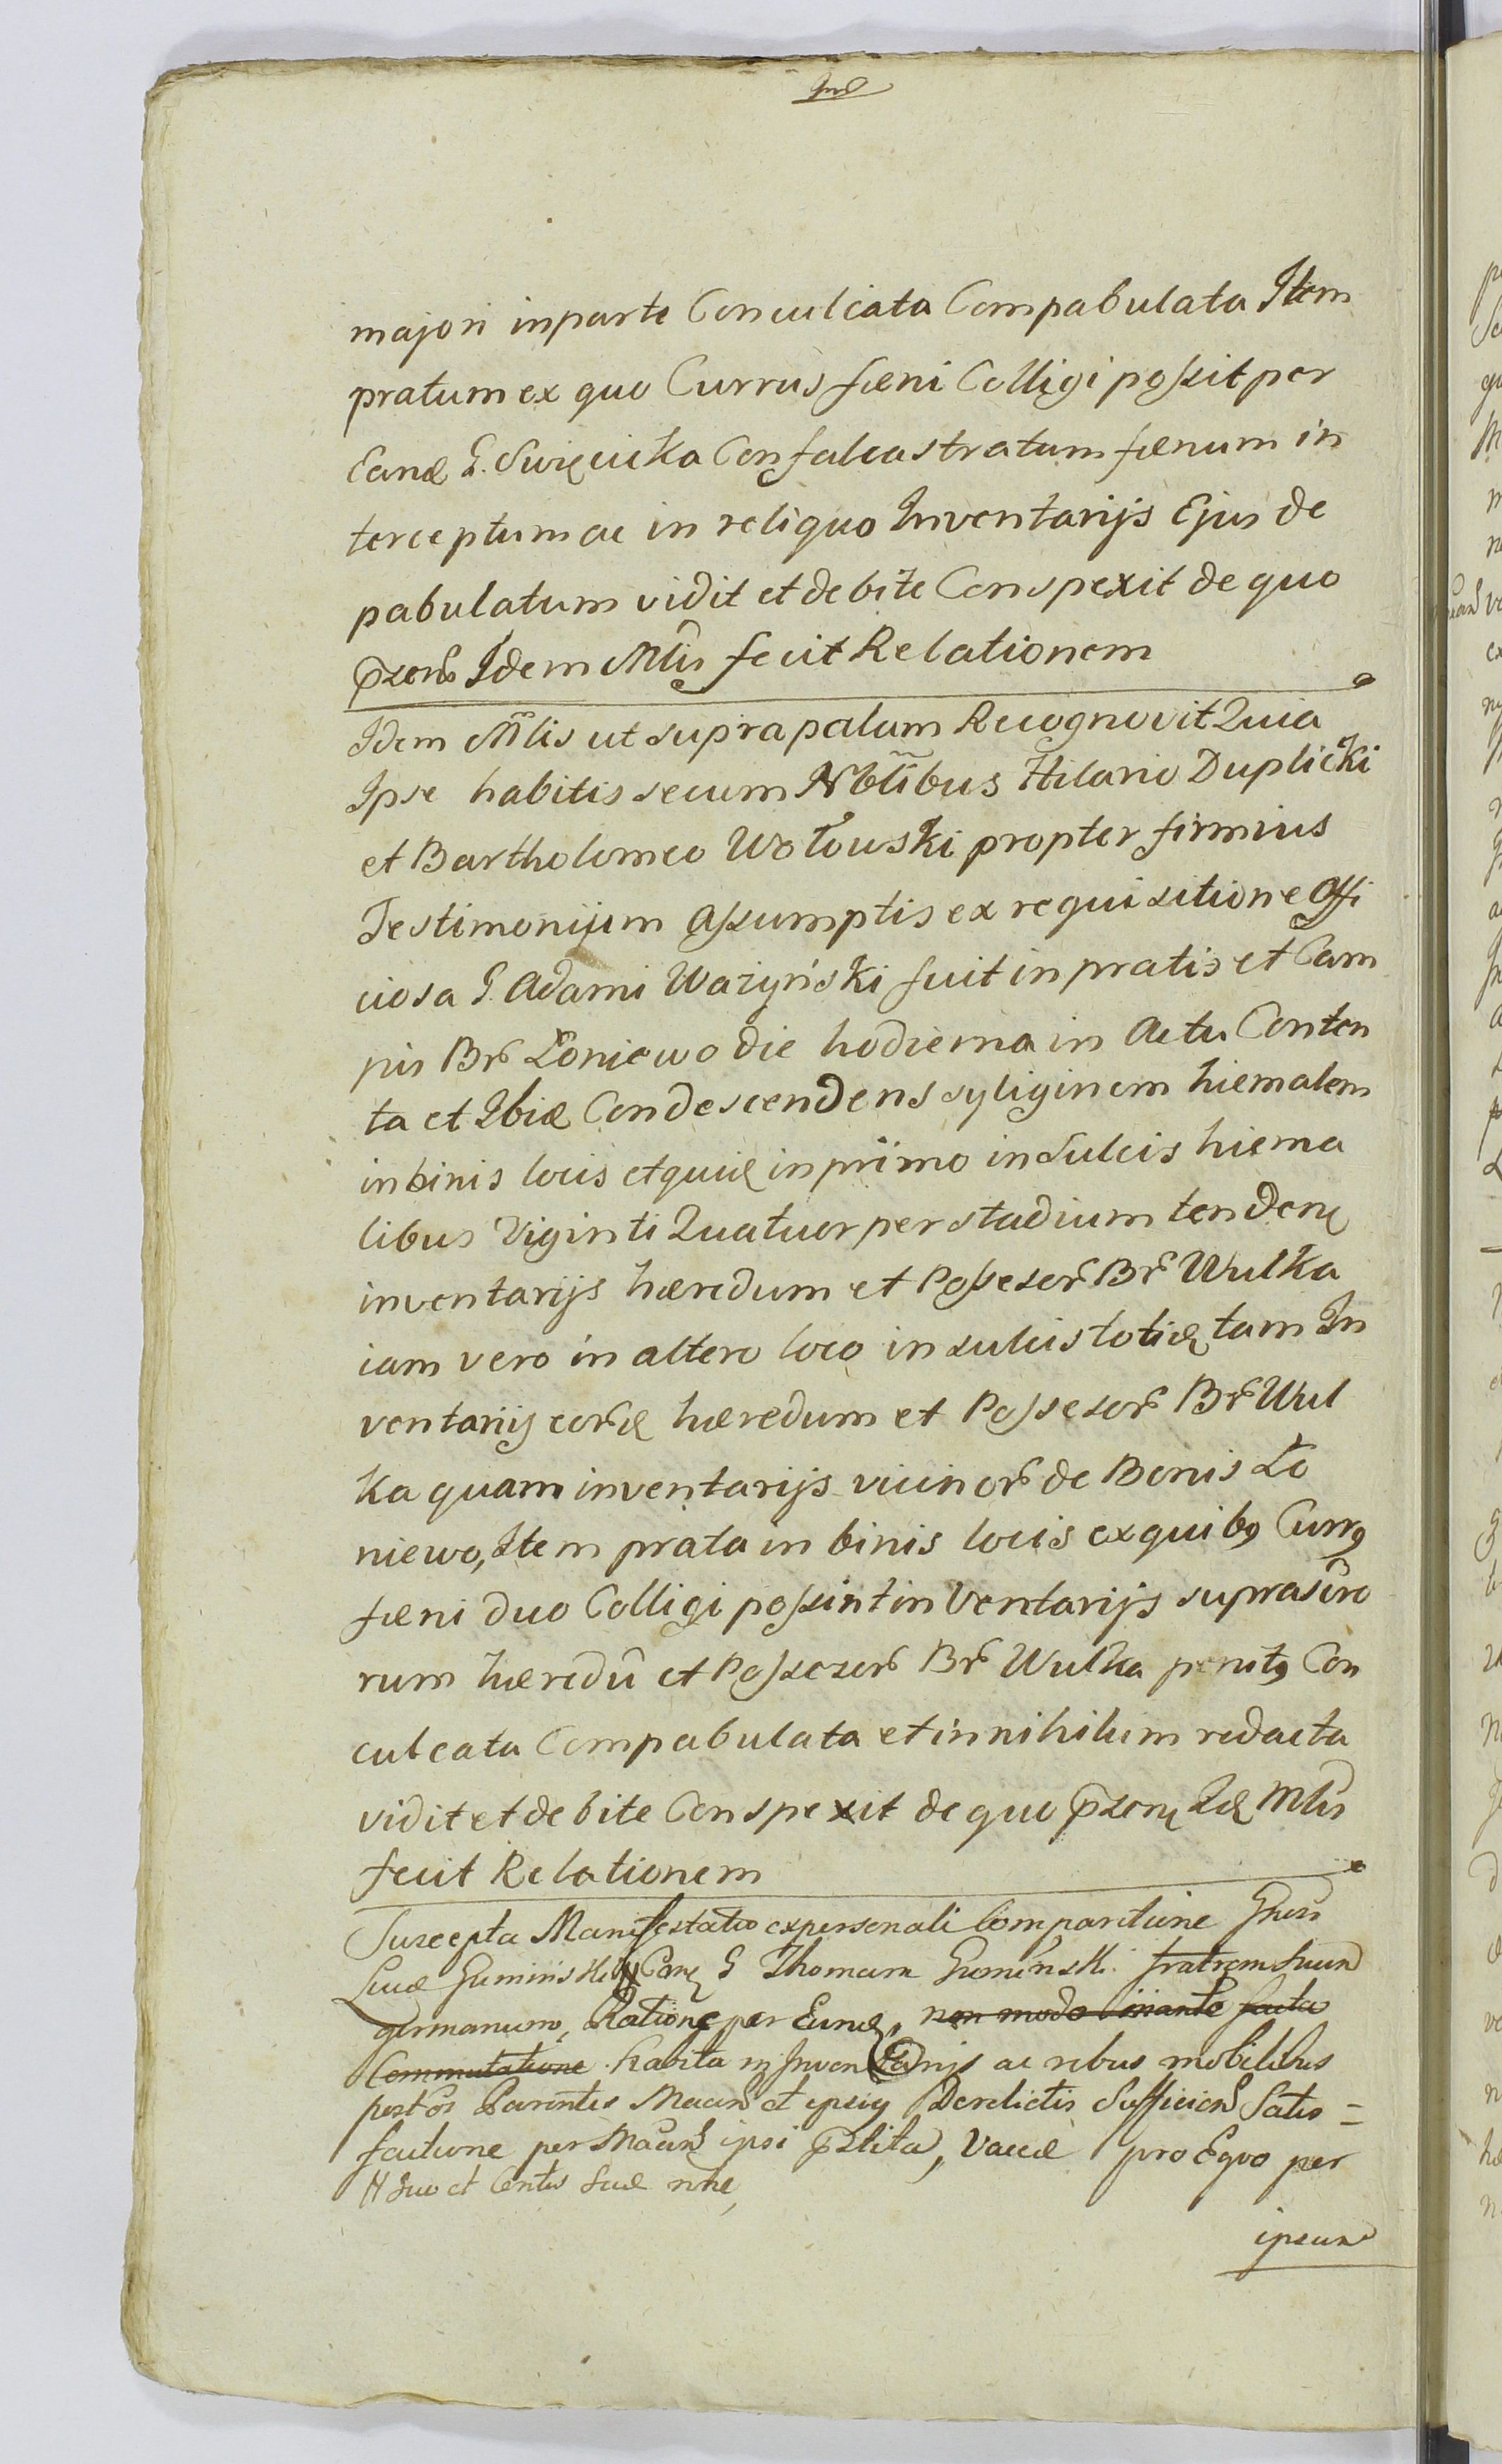 majori inparte Conculcata Compabulata Item
pratum ex quo Currus fœni Colligi possit per
Eand G. Święcicka Confalcastratum fœnum in
terceptum ac in reliquo Inventarijs Ejus de
pabulatum vidit et debite Conspexit de quo
przens Idem Mlis fecit Relationem
Idem Mlis ut supra palam Recognovit Quia
Ipse habitis secum Nbtibus Hilario Duplicki
et Bartholomeo Wołowski propter firmius
Testimonijum assumptis ex requisitione Offi
ciosa G. Adami Ważyński fuit in pratis et Cam
pis Br Łoniewo die hodierna in Actu Conten
ta et Ibid Condescendens syliginem hiemalem
in binis locis et quid in primo in Sulcis hiema
libus Viginti Quatuor per stadium tenden
inventarijs hæredum et Possesor Br Wulka
iam vero in altero loco in sulcis totid tam In
ventarijs eord hæredum et Possesor Br Wul
ka quam inventarijs vicinor de Bonis Ło
niewo, Item prata in binis locis ex quibq Currq
fœni duo Colligi possint inventarijs suprascro
rum hæredū et Possesor Br Wulka penitq Con
culcata Compabulata et in nihilum redacta
vidit et debite Conspexit de quo przen Id Mlis
fecit Relationem
Suscepta Manifestatio ex personali Comparitione Gnrsi
Lucæ Gumiński # Con G Thomam Gumiński fratrem suum
germanum, Ratione per Eund, non modo facta
Commutatione habita in Inventarijs ac rebus mobilibus
post os Parentes Man et ipsiq Derelictis Sufficien Satis=
factione per Man ipsi przstita, Vaccæ pro Equo per
# Suo et Contis Suæ nne,
ipsum